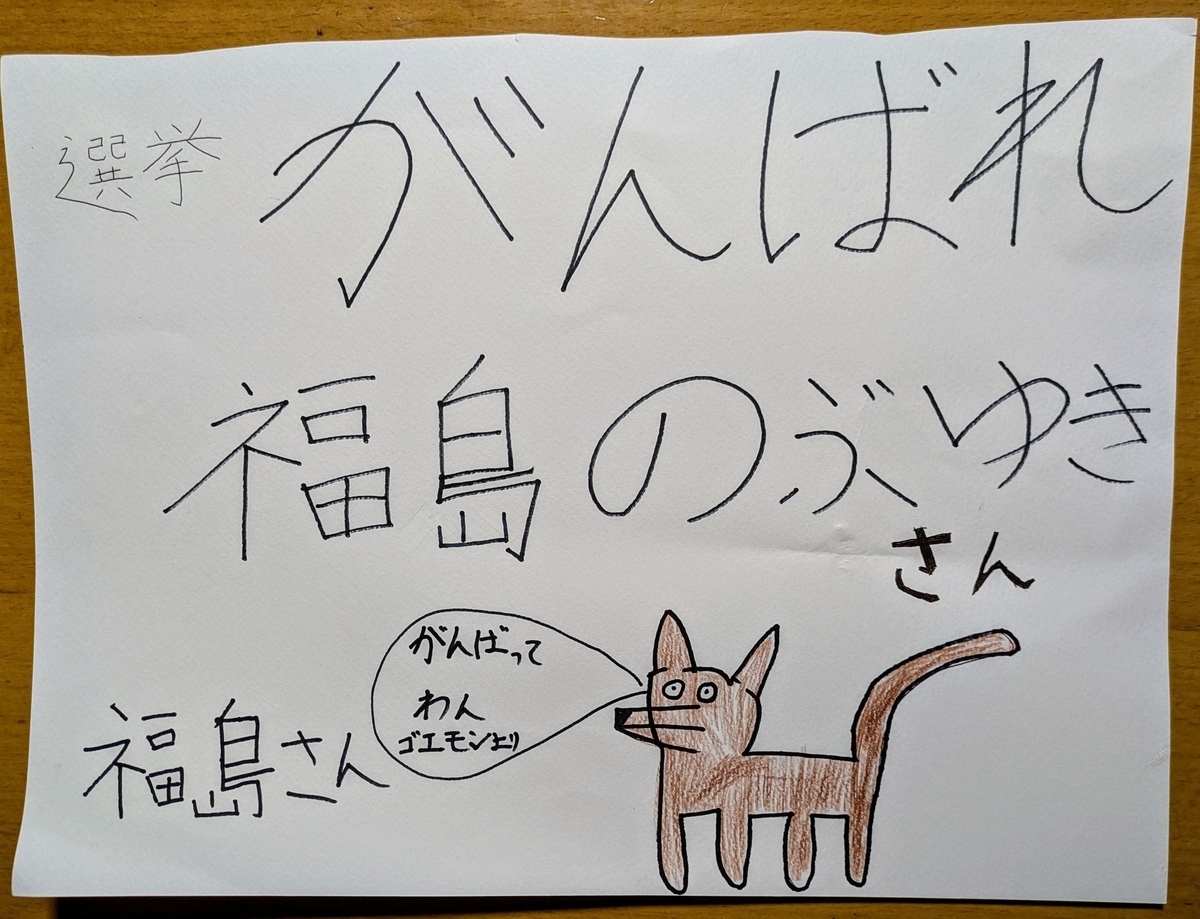 選挙 がんばれ
福島のぶゆき
さん
がんばって
わん
ゴエモンより
福島さん